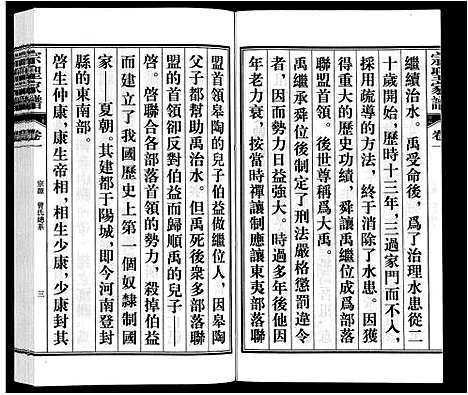 宗聖家譜
卷一
繼續治水。禹受命後，爲了治理水患從二
十歲開始，歷時十三年，三過家門而不入，
採用疏導的方法，終于消除了水患。因獲
得重大的歷史功績，舜讓禹繼位成爲部落
聯盟首領。後世尊稱爲大禹。
禹繼承舜位後制定了刑法嚴格懲罰違令
者，因而勢力日益強大。時過多年後他因
年老力衰，按當時禪讓制應讓東夷部落
盟首領皋陶的兒子伯益做繼位人，因皋陶
父子都幫助禹治水。但禹死後衆多部落聯
盟的首領卻反對伯益而歸順禹的兒子—
啓。啓聯合各部落首領的勢力，殺掉伯益
而建立了我國歷史上第一個奴隸制國
家—夏朝。其建都于陽城，即今河南登封
縣的東南部。
啓生仲康，康生帝相，相生少康，少康封其
宗聖家譜
卷一
宗源
曾氏總系
三